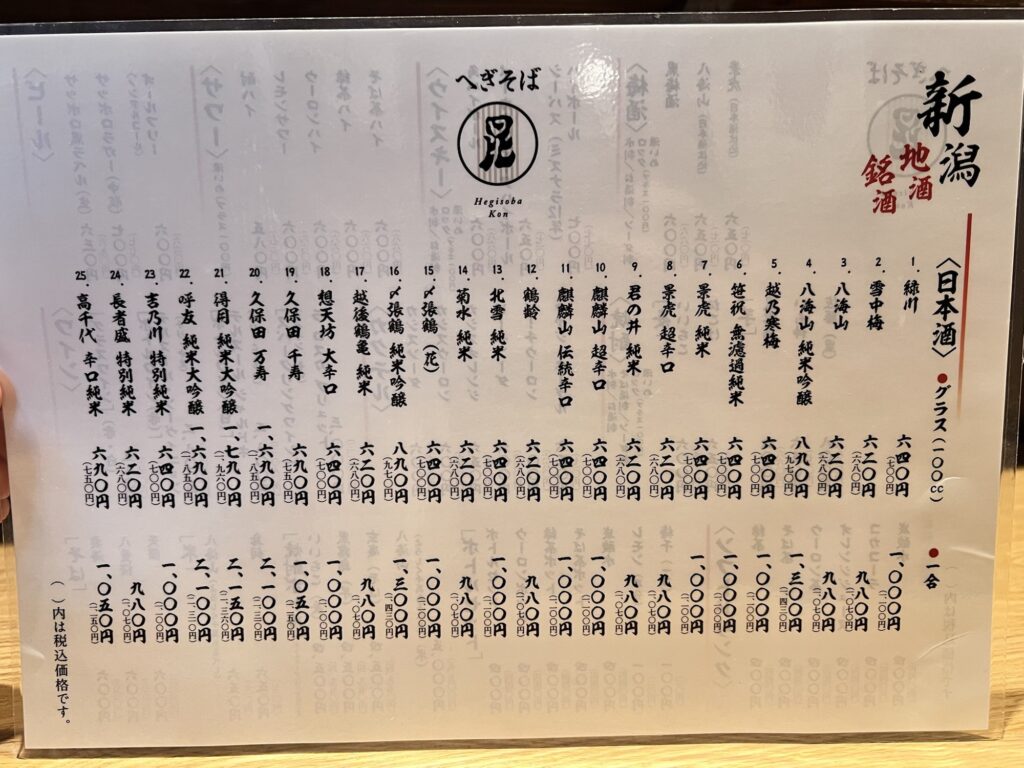 新潟
地酒
銘酒
へぎそば
昆
Hegisoba
Kon
〈日本酒〉 ●グラス(一〇〇cc) ●一合
1. 緑川 六四〇円(七〇〇円) 一、〇〇〇円(一、一〇〇円)
2. 雪中梅 六二〇円(六八〇円) 九八〇円(一、〇七〇円)
3. 八海山 六二〇円(六八〇円) 九八〇円(一、〇七〇円)
4. 八海山 純米吟醸 八九〇円(九七〇円) 一、三〇〇円(一、四三〇円)
5. 越乃寒梅 六四〇円(七〇〇円) 一、〇〇〇円(一、一〇〇円)
6. 笹祝 無濾過純米 六四〇円(七〇〇円) 一、〇〇〇円(一、一〇〇円)
7. 景虎 純米 六四〇円(七〇〇円) 一、〇〇〇円(一、一〇〇円)
8. 景虎 超辛口 六二〇円(六八〇円) 九八〇円(一、〇七〇円)
9. 君の井 純米 六二〇円(六八〇円) 九八〇円(一、〇七〇円)
10. 麒麟山 超辛口 六四〇円(七〇〇円) 一、〇〇〇円(一、一〇〇円)
11. 麒麟山 伝統辛口 六四〇円(七〇〇円) 一、〇〇〇円(一、一〇〇円)
12. 鶴齢 六二〇円(六八〇円) 九八〇円(一、〇七〇円)
13. 北雪 純米 六四〇円(七〇〇円) 一、〇〇〇円(一、一〇〇円)
14. 菊水 純米 六二〇円(六八〇円) 九八〇円(一、〇七〇円)
15. 〆張鶴(花) 六四〇円(七〇〇円) 一、〇〇〇円(一、一〇〇円)
16. 〆張鶴 純米吟醸 八九〇円(九七〇円) 一、三〇〇円(一、四三〇円)
17. 越後鶴亀 純米 六二〇円(六八〇円) 九八〇円(一、〇七〇円)
18. 想天坊 大辛口 六四〇円(七〇〇円) 一、〇〇〇円(一、一〇〇円)
19. 久保田 千寿 六九〇円(七五〇円) 一、〇五〇円(一、一五〇円)
20. 久保田 万寿 一、六九〇円(一、八五〇円) 二、一〇〇円(二、三一〇円)
21. 得月 純米大吟醸 一、七九〇円(一、九六〇円) 二、一五〇円(二、三六〇円)
22. 呼友 純米大吟醸 一、六九〇円(一、八五〇円) 二、一〇〇円(二、三一〇円)
23. 吉乃川 特別純米 六四〇円(七〇〇円) 一、〇〇〇円(一、一〇〇円)
24. 長者盛 特別純米 六二〇円(六八〇円) 九八〇円(一、〇七〇円)
25. 高千代 辛口純米 六九〇円(七五〇円) 一、〇五〇円(一、一五〇円)
( )内は税込価格です。